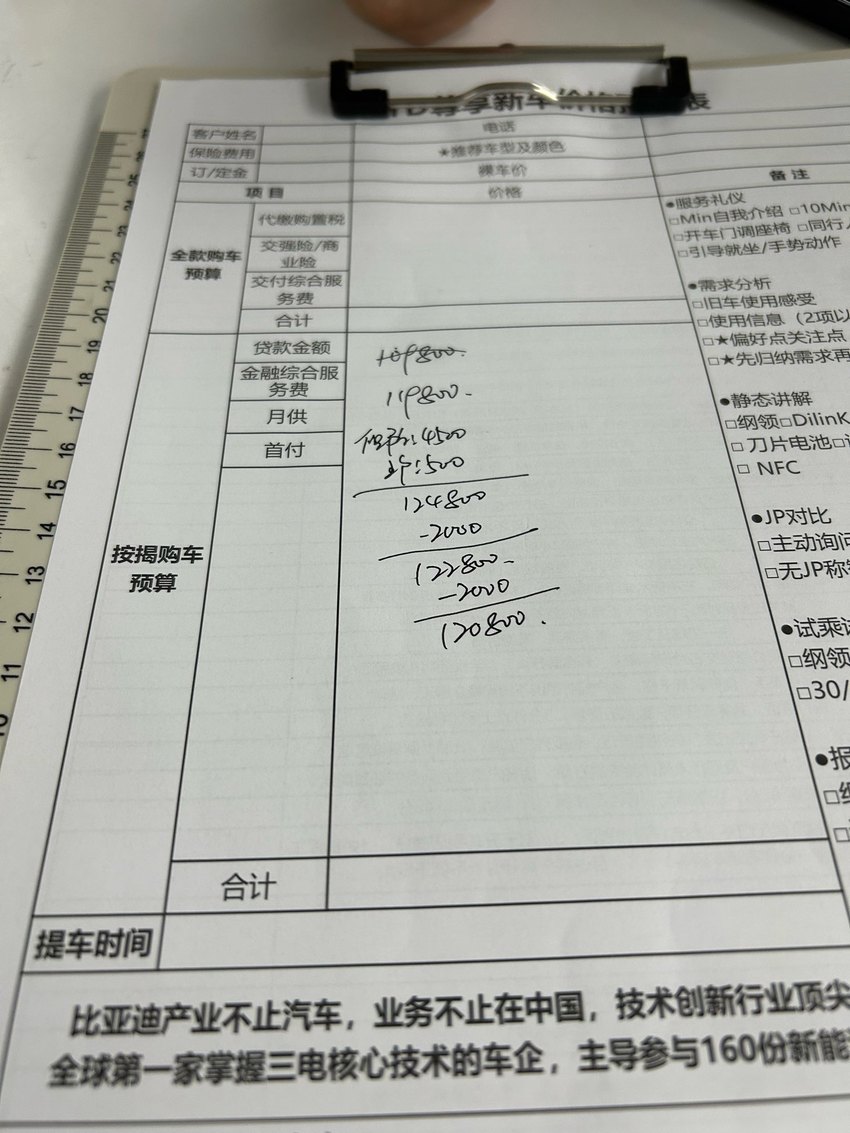 尊享新车价格
表
客户姓名
电话
保险费用
★推荐车型及颜色
订/定金
裸车价
备注
项目
价格
全款购车
预算
代缴购置税
交强险/商
业险
交付综合服
务费
合计
●服务礼仪
□Min自我介绍 □10Min
□开车门调座椅 □同行
□引导就坐/手势动作
●需求分析
□旧车使用感受
□使用信息（2项以
□★偏好点关注点
□★先归纳需求再
按揭购车
预算
贷款金额
109800.
金融综合服
务费
119800.
月供
保险:4500
首付
:500
124800
-2000
122800.
-2000
120800.
●静态讲解
□纲领□DilinK
□ 刀片电池□
□ NFC
●JP对比
□主动询问
□无JP称
●试乘试
□纲领
□30/
●报
合计
提车时间
比亚迪产业不止汽车，业务不止在中国，技术创新行业顶尖
全球第一家掌握三电核心技术的车企，主导参与160份新能